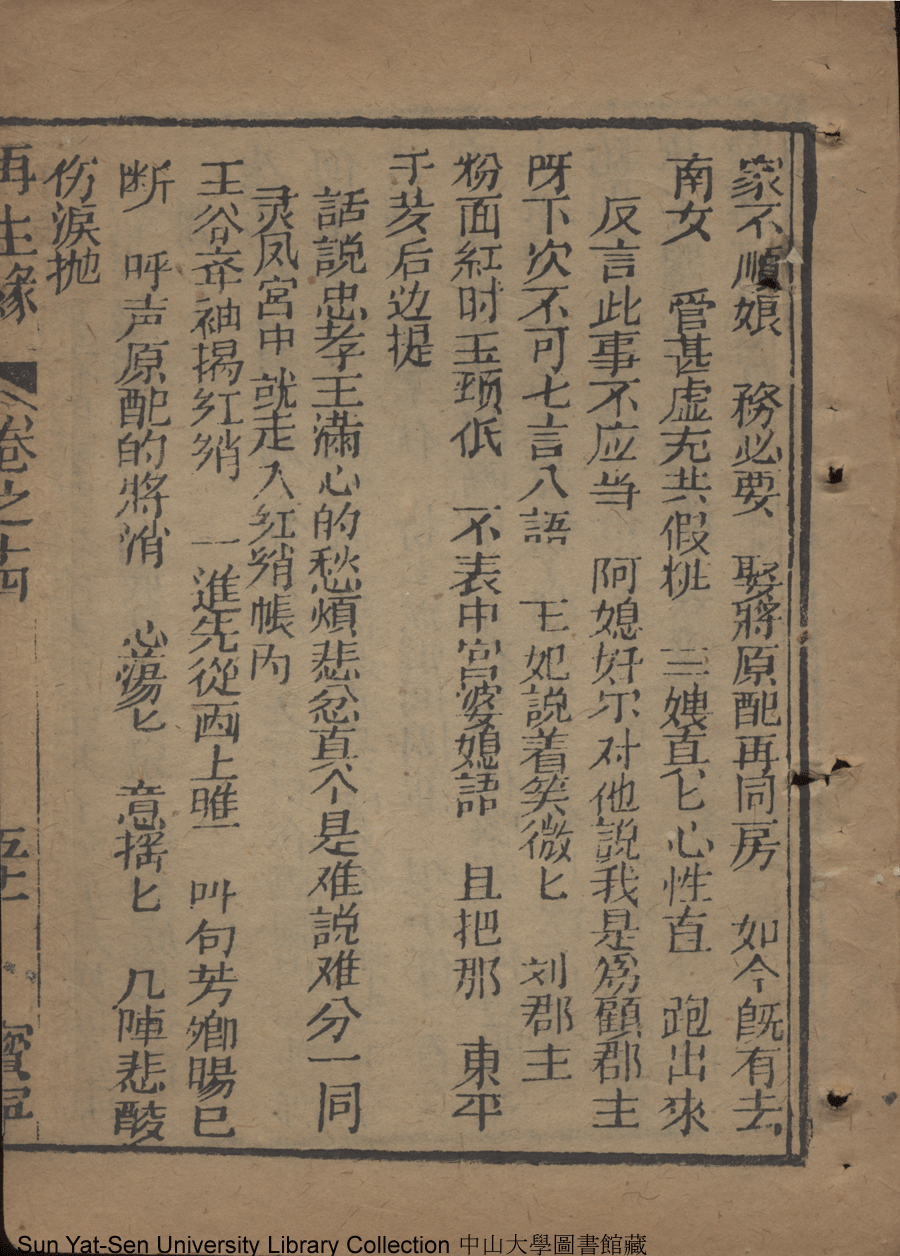 家不順娘　務必要　娶將原配再同房　如今既有去
南女　管甚虚充共假桃　三嫂直匕心性直　跑出來
反言此事不应当　阿媳好尔对他説我是為顧郡主
呀下次不可七言八語　王妃説着笑微匕　刘郡主
粉面紅时玉頸低　不表中宮婆媳語　且把那　東平
千芳后边提
話説忠孝王滿心的愁煩悲忿真个是难説难分一同
灵凤宮中就走入紅綃帳內
王谷牵袖揭紅綃　一進先從西上瞧　叫句芳卿暘已
断　呼声原配的將消　心蕩匕　意搖匕　几陣悲酸
伤淚抛
再生緣　卷之十四　五十　寶寧
Sun Yat-Sen University Library Collection 中山大學圖書館藏